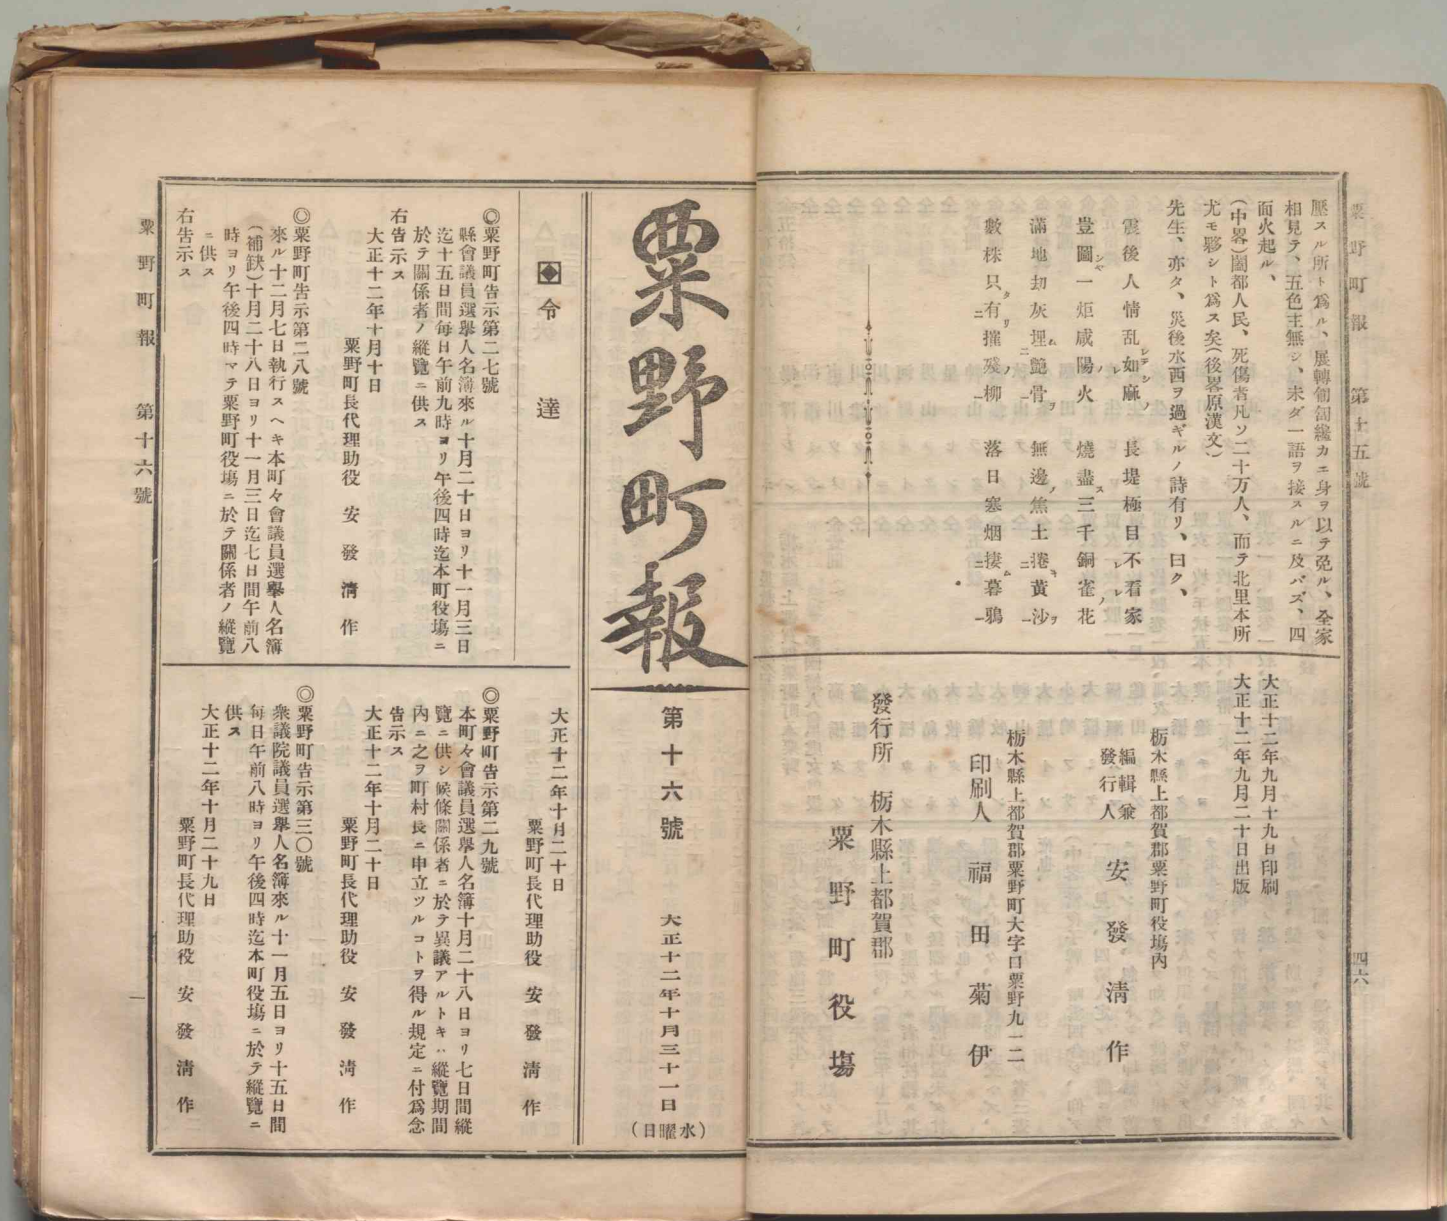 粟野町報 第十五號
四六
壓スル所ト爲ル、展轉匍匐纔カニ身ヲ以テ免ル、全家
相見テ、五色主無シ、未ダ一語ヲ接スルニ及バズ、四
面火起ル、
(中畧)闔都人民、死傷者凡ソ二十万人、而テ北里本所
尤モ夥シト爲ス矣(後畧原漢文)
先生、亦タ、災後水西ヲ過ギルノ詩有リ、曰ク、
震後人情乱如麻 長堤極目不看家
豈圖一炬咸陽火 燒盡三千銅雀花
滿地刧灰埋艶骨 無邊焦土捲黃沙
數株只有摧殘柳 落日寒烟捿暮鴉
大正十二年九月十九日印刷
大正十二年九月二十日出版
栃木縣上都賀郡粟野町役塲內
編輯兼
發行人 安發淸作
栃木縣上都賀郡粟野町大字口粟野九一二
印刷人 福田菊伊
發行所 栃木縣上都賀郡
粟野町役塲
粟野町報
第十六號 大正十二年十月三十一日(水曜日)
令達
◎粟野町告示第二七號
縣會議員選擧人名簿來ル十月二十日ヨリ十一月三日
迄十五日間每日午前九時ヨリ午後四時迄本町役塲ニ
於テ關係者ノ縱覽ニ供ス
右告示ス
大正十二年十月十日
粟野町長代理助役 安發淸作
◎粟野町告示第二八號
來ル十二月七日執行スヘキ本町々會議員選擧人名簿
(補缺)十月二十八日ヨリ十一月三日迄七日間午前八
時ヨリ午後四時マテ粟野町役塲ニ於テ關係者ノ縱覽
ニ供ス
右告示ス
大正十二年十月二十日
粟野町長代理助役 安發淸作
◎粟野町告示第二九號
本町々會議員選擧人名簿十月二十八日ヨリ七日間縱
覽ニ供シ候條關係者ニ於テ異議アルトキハ縱覽期間
內ニ之ヲ町村長ニ申立ツルコトヲ得ル規定ニ付爲念
告示ス
大正十二年十月二十日
粟野町長代理助役 安發淸作
◎粟野町告示第三〇號
衆議院議員選擧人名簿來ル十一月五日ヨリ十五日間
每日午前八時ヨリ午後四時迄本町役塲ニ於テ縱覽ニ
供ス
大正十二年十月二十九日
粟野町長代理助役 安發淸作
粟野町報 第十六號
一